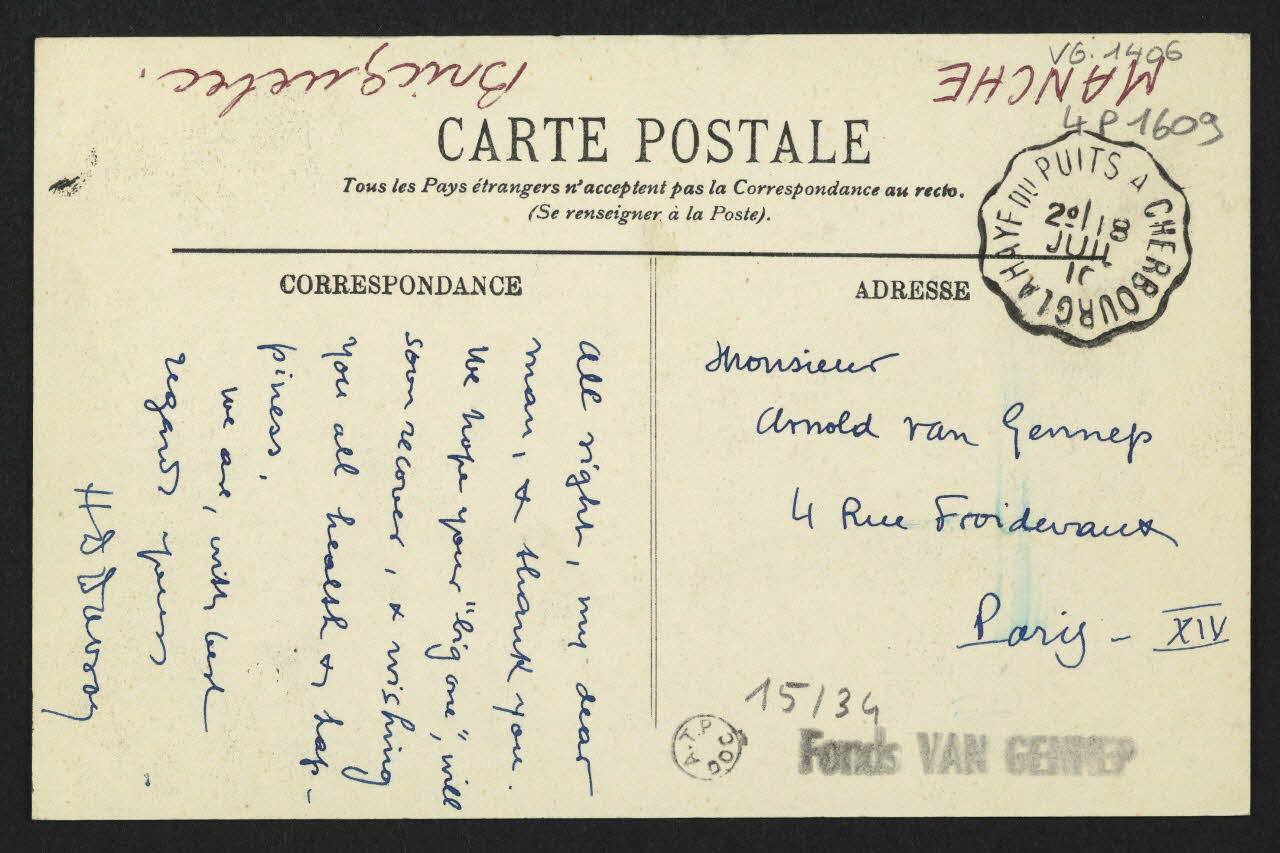 VG.1406
MANCHE
Bricquebec.
4 P 1609
CARTE POSTALE
Tous les Pays étrangers n'acceptent pas la Correspondance au recto.
(Se renseigner à la Poste).
LAHAYE DU PUITS A CHERBOURG
JUIL
CORRESPONDANCE
All right, my dear
man, & thank you.
We hope your "big one", will
soon recover, & wishing
you all health & hap-
piness,
We are, with best
regards yours
ADRESSE
Monsieur
Arnold van Gennep
4 Rue Froidevaux
Paris - XIV
15/34
A.T.P DOC
Fonds VAN GENNEP